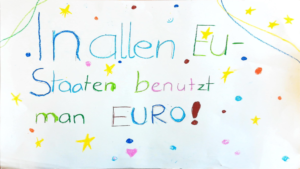 In allen Eu-
Staaten benutzt
man EURO!